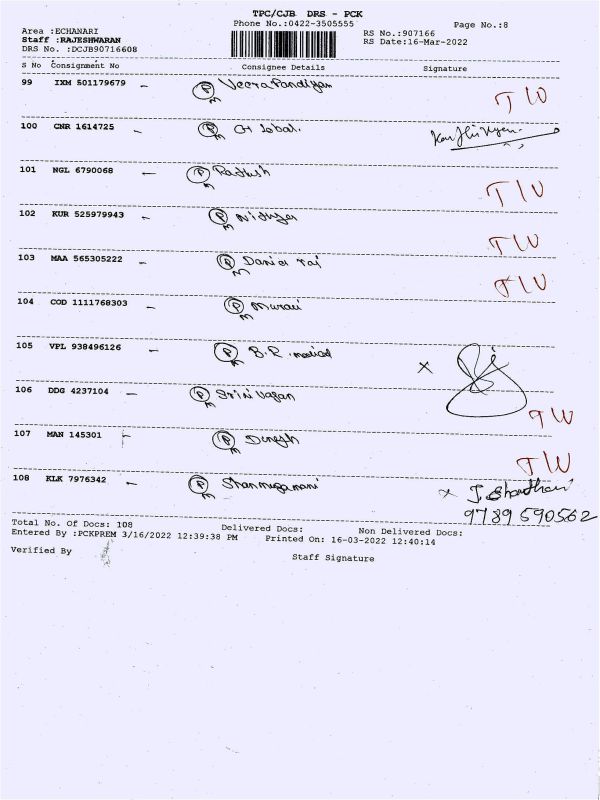 TPC/CJB DRS - PCK
Phone No.:0422-3505555 Page No.:8
Area :ECHANARI RS No.:907166
Staff :RAJESHWARAN RS Date:16-Mar-2022
DRS No. :DCJB90716608
S No Consignment No Consignee Details Signature
99 IXM 501179679 - P M VeeraPandiyan
T W
100 CNR 1614725 - P M
101 NGL 6790068 - P M
T W
102 KUR 525979943 - P M Nidhya
T W
103 MAA 565305222 - P M Daniel raj
T W
104 COD 1111768303 - P M Murali
105 VPL 938496126 - P M B.R.
X
106 DDG 4237104 - P M Srinivasan
T W
107 MAN 145301 - P M Dinesh
T W
108 KLK 7976342 - P M Shanmugamani
X
9789590562
Total No. Of Docs: 108 Delivered Docs: Non Delivered Docs:
Entered By :PCKPREM 3/16/2022 12:39:38 PM Printed On: 16-03-2022 12:40:14
Verified By Staff Signature